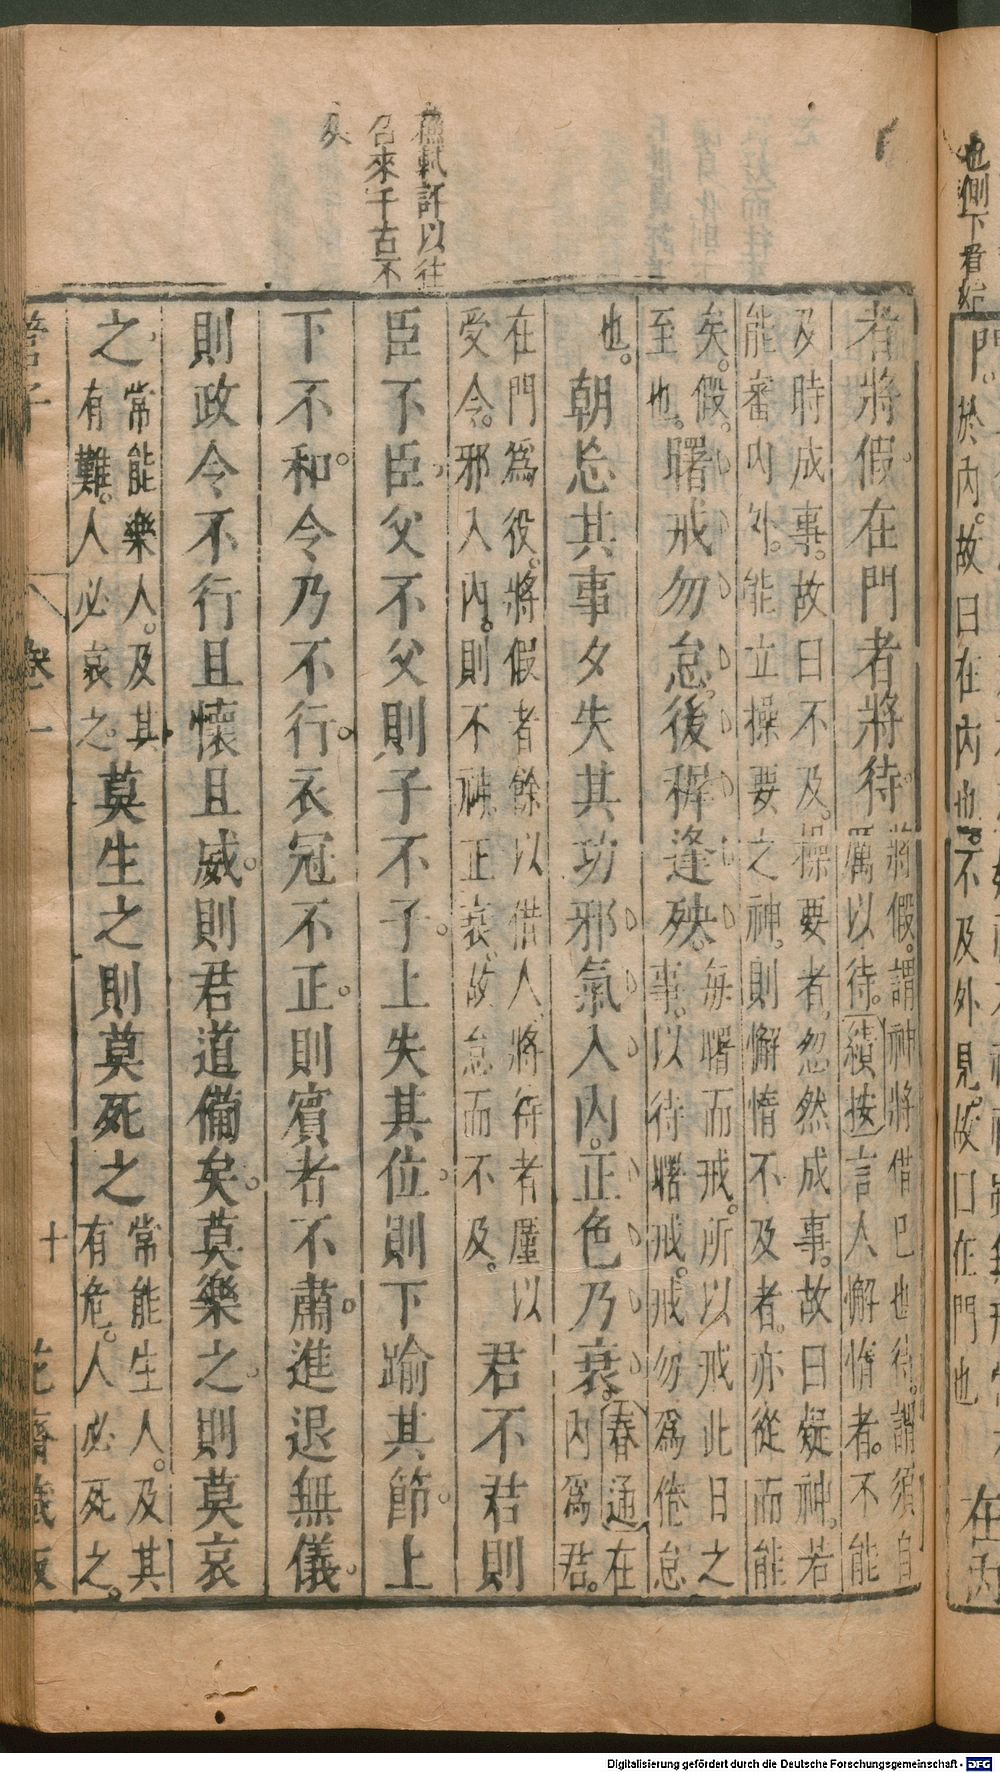 蘇軾評以往
召來千古不
及
者將假在門者將待將假謂神將借已也待謂須自
厲以待續按言人懈惰者不能
及時成事故曰不及操要者忽然成事故曰疑神若
能審內外能立操要之神則懈惰不及者亦從而能
矣假
至也曙戒勿怠後稺逢殃每曙而戒所以戒此日之
事以待曙戒戒勿爲倦怠
也朝忘其事夕失其功邪氣入內正色乃衰春通在
內爲君
在門爲役將假者餘以借人將待者厪以
受令邪入內則不神正衰故怠而不及君不君則
臣不臣父不父則子不子上失其位則下踰其節上
下不和令乃不行衣冠不正則賓者不肅進退無儀
則政令不行且懷且威則君道備矣莫樂之則莫哀
之常能樂人及其
有難人必哀之莫生之則莫死之常能生人及其
有危人必死之
管子
卷一
十
花齋藏板
也側下看始
門於內故曰在內也不及外見故曰在門也
在內
Digitalisierung gefördert durch die Deutsche Forschungsgemeinschaft - DFG